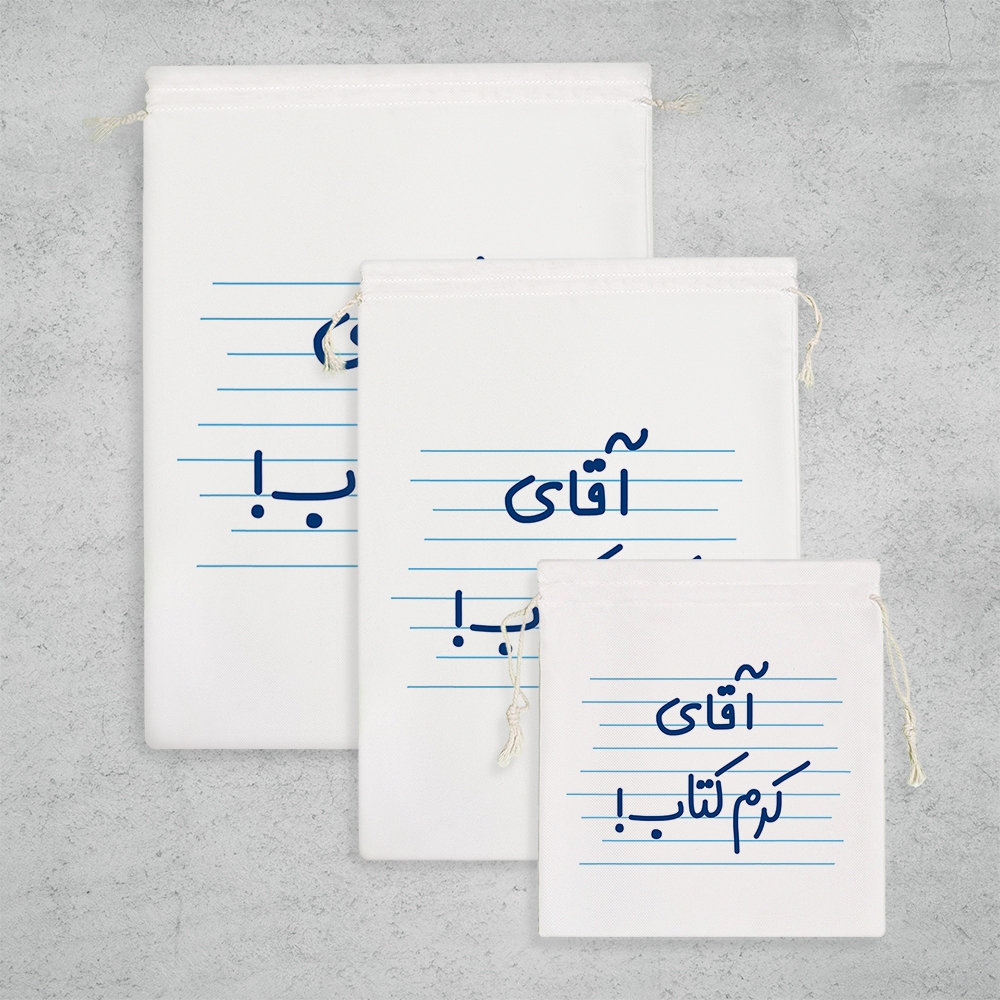 آقای
آقای
کرم کتاب!